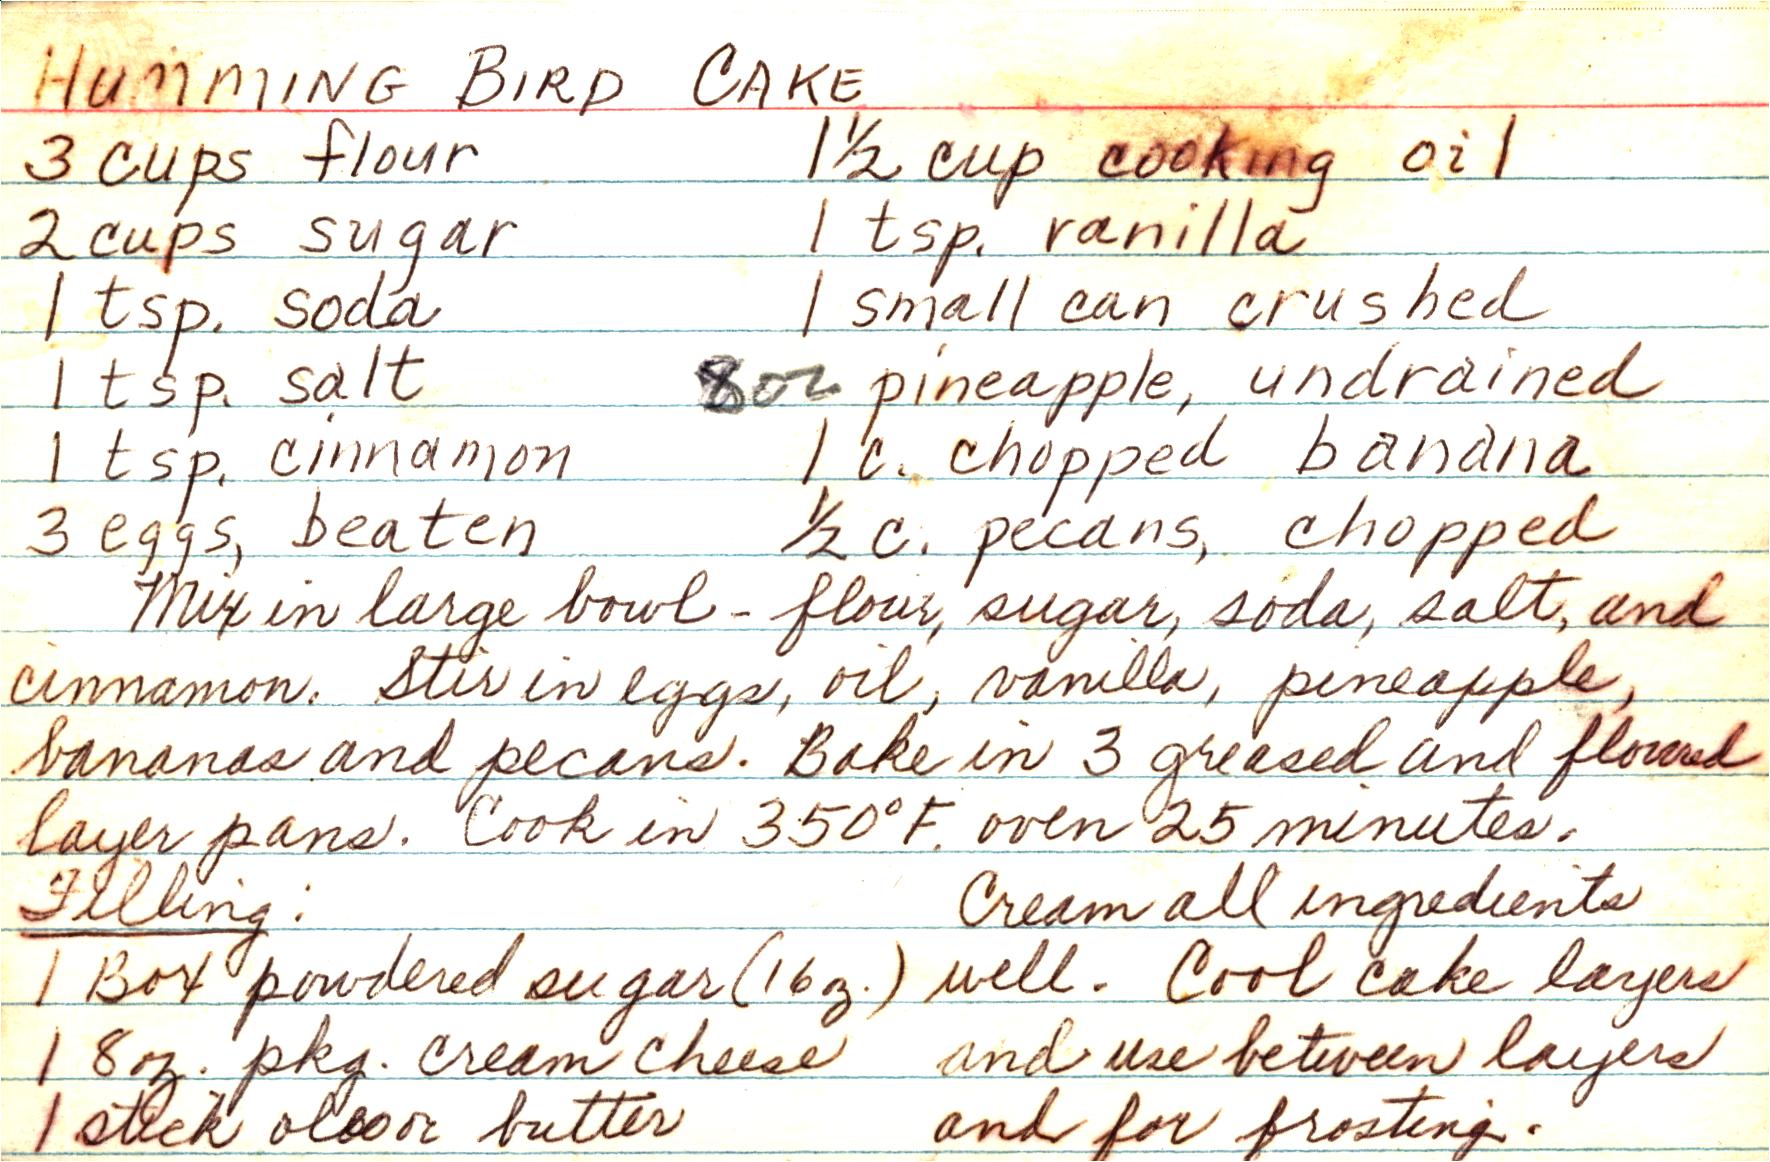 HUMMING BIRD CAKE
3 cups flour 1½ cup cooking oil
2 cups sugar 1 tsp. vanilla
1 tsp. soda 1 small can crushed
1 tsp. salt 8oz pineapple, undrained
1 tsp. cinnamon 1 c. chopped banana
3 eggs, beaten ½ c. pecans, chopped
Mix in large bowl - flour, sugar, soda, salt, and
cinnamon. Stir in eggs, oil, vanilla, pineapple,
bananas and pecans. Bake in 3 greased and floured
layer pans. Cook in 350°F. oven 25 minutes.
Filling:
1 Box powdered sugar (16 oz.)
1 8 oz. pkg. cream cheese
1 stick oleo or butter
Cream all ingredients
well. Cool cake layers
and use between layers
and for frosting.